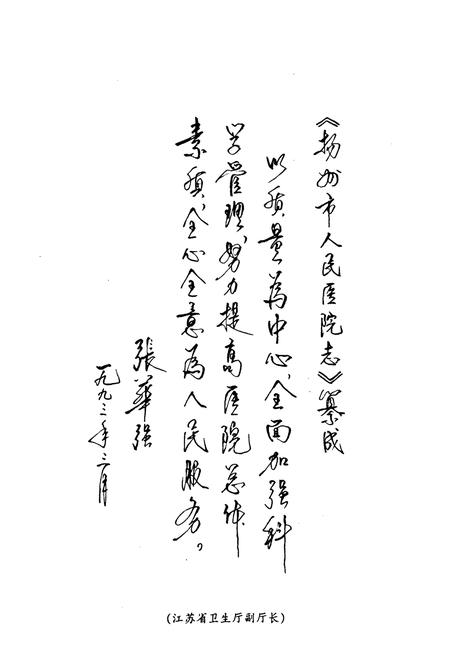 《扬州市人民医院志》纂成
以质量为中心，全面加强科
学管理，努力提高医院总体
素质，全心全意为人民服务。
張華强
一九九三年三月
(江苏省卫生厅副厅长)